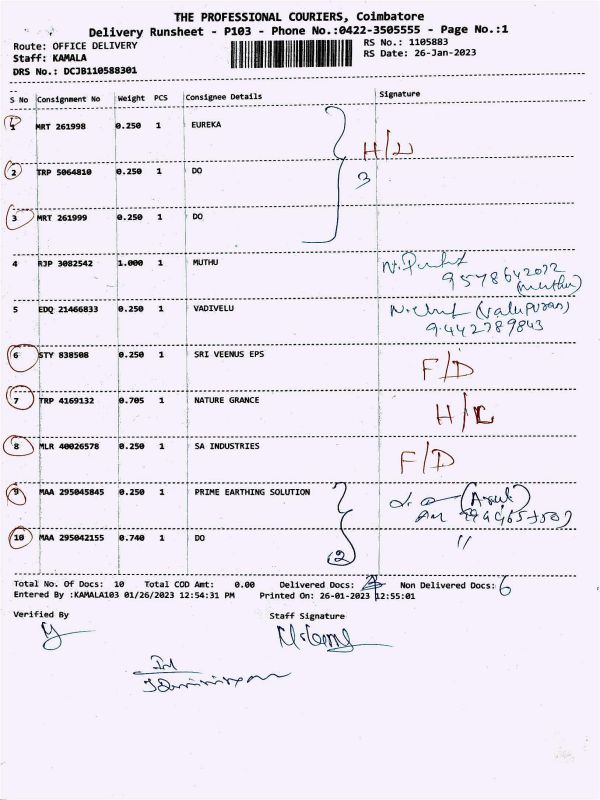 THE PROFESSIONAL COURIERS, Coimbatore
Delivery Runsheet - P103 - Phone No.:0422-3505555 - Page No.:1
Route: OFFICE DELIVERY RS No.: 1105883
Staff: KAMALA RS Date: 26-Jan-2023
DRS No.: DCJB110588301
S No Consignment No Weight PCS Consignee Details Signature
1 MRT 261998 0.250 1 EUREKA
2 TRP 5064810 0.250 1 DO 3
3 MRT 261999 0.250 1 DO
4 RJP 3082542 1.000 1 MUTHU
(Muthu)
5 EDQ 21466833 0.250 1 VADIVELU
9442789843
6 STY 838508 0.250 1 SRI VEENUS EPS F/D
7 TRP 4169132 0.705 1 NATURE GRANCE
8 MLR 40026578 0.250 1 SA INDUSTRIES F/D
9 MAA 295045845 0.250 1 PRIME EARTHING SOLUTION
10 MAA 295042155 0.740 1 DO 2 "
Total No. Of Docs: 10 Total COD Amt: 0.00 Delivered Docs: 4 Non Delivered Docs: 6
Entered By :KAMALA103 01/26/2023 12:54:31 PM Printed On: 26-01-2023 12:55:01
Verified By Staff Signature